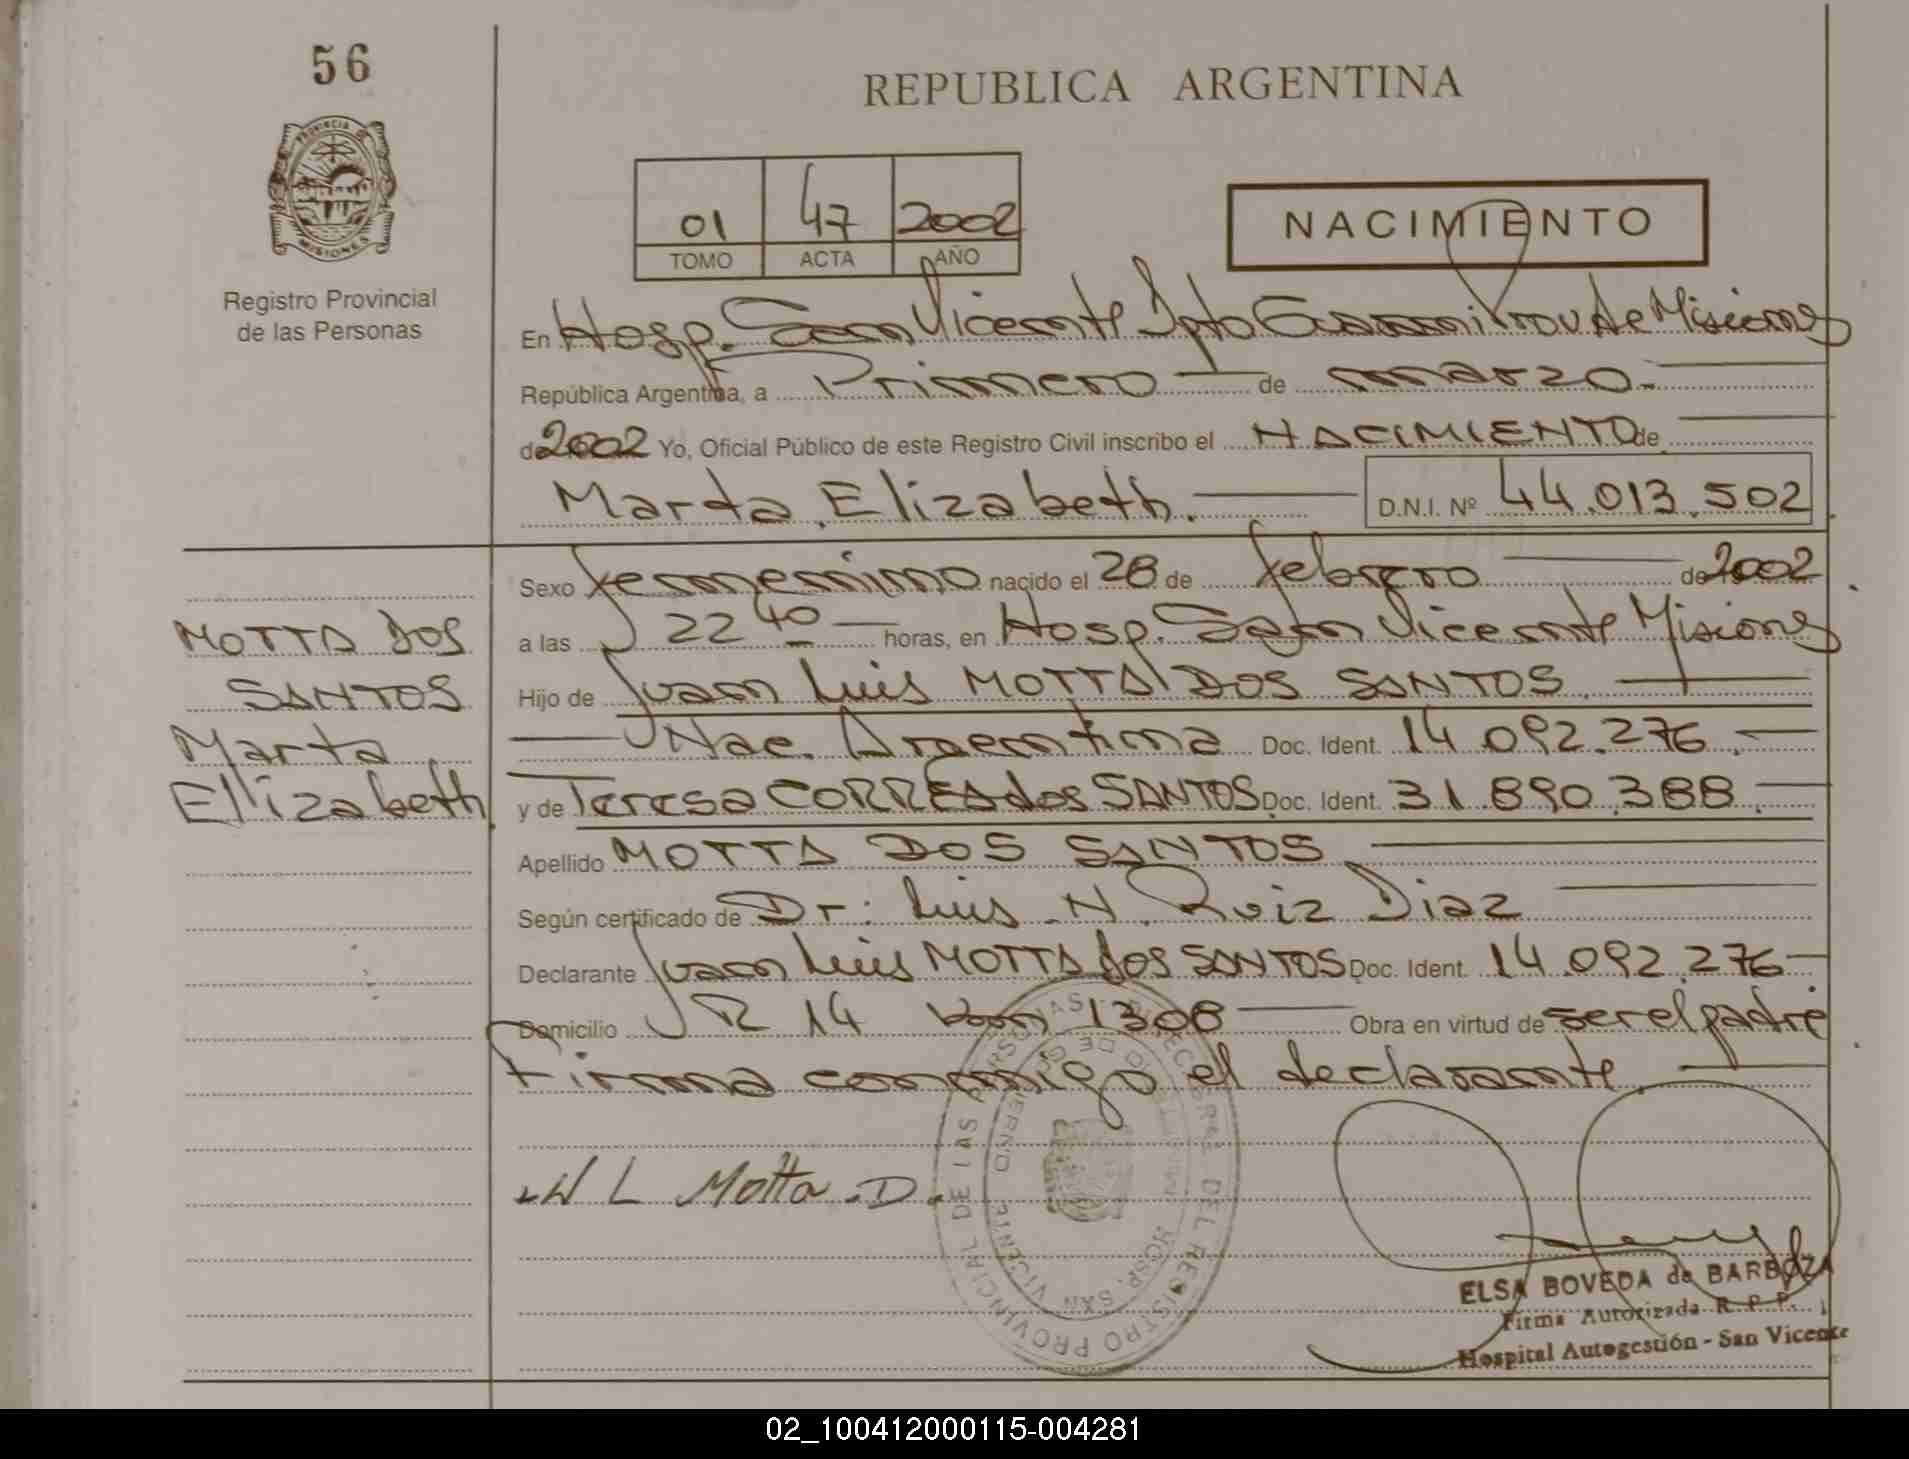 56
PROVINCIA DE
MISIONES
Registro Provincial
de las Personas
REPUBLICA ARGENTINA
01 47 2002
TOMO ACTA AÑO
NACIMIENTO
En Hosp. San Vicente Dpto Guarani Prov de Misiones
República Argentina, a Primero de marzo.
de 2002 Yo, Oficial Público de este Registro Civil inscribo el NACIMIENTO de
Marta Elizabeth. D.N.I. Nº 44.013.502
Sexo femenino nacido el 28 de febrero de 2002
a las 22 40 horas, en Hosp. San Vicente Misiones
Hijo de Juan Luis MOTTA DOS SANTOS
Nac. Argentina Doc. Ident. 14.092.276.
y de Teresa CORREA dos SANTOS Doc. Ident. 31.890.388
Apellido MOTTA DOS SANTOS
Según certificado de Dr: Luis N. Ruiz Diaz
Declarante Juan Luis MOTTA dos SANTOS Doc. Ident. 14.092.276
Domicilio R 14 km 1308 Obra en virtud de ser el padre
Firma conmigo el declarante.
MOTTA DOS
SANTOS
Marta
Elizabeth.
L Motta D.
HOSP. SAN VICENTE
ELSA BOVEDA de BARBOZA
Firma Autorizada R. P. P.
Hospital Autogestión - San Vicente
02_100412000115-004281